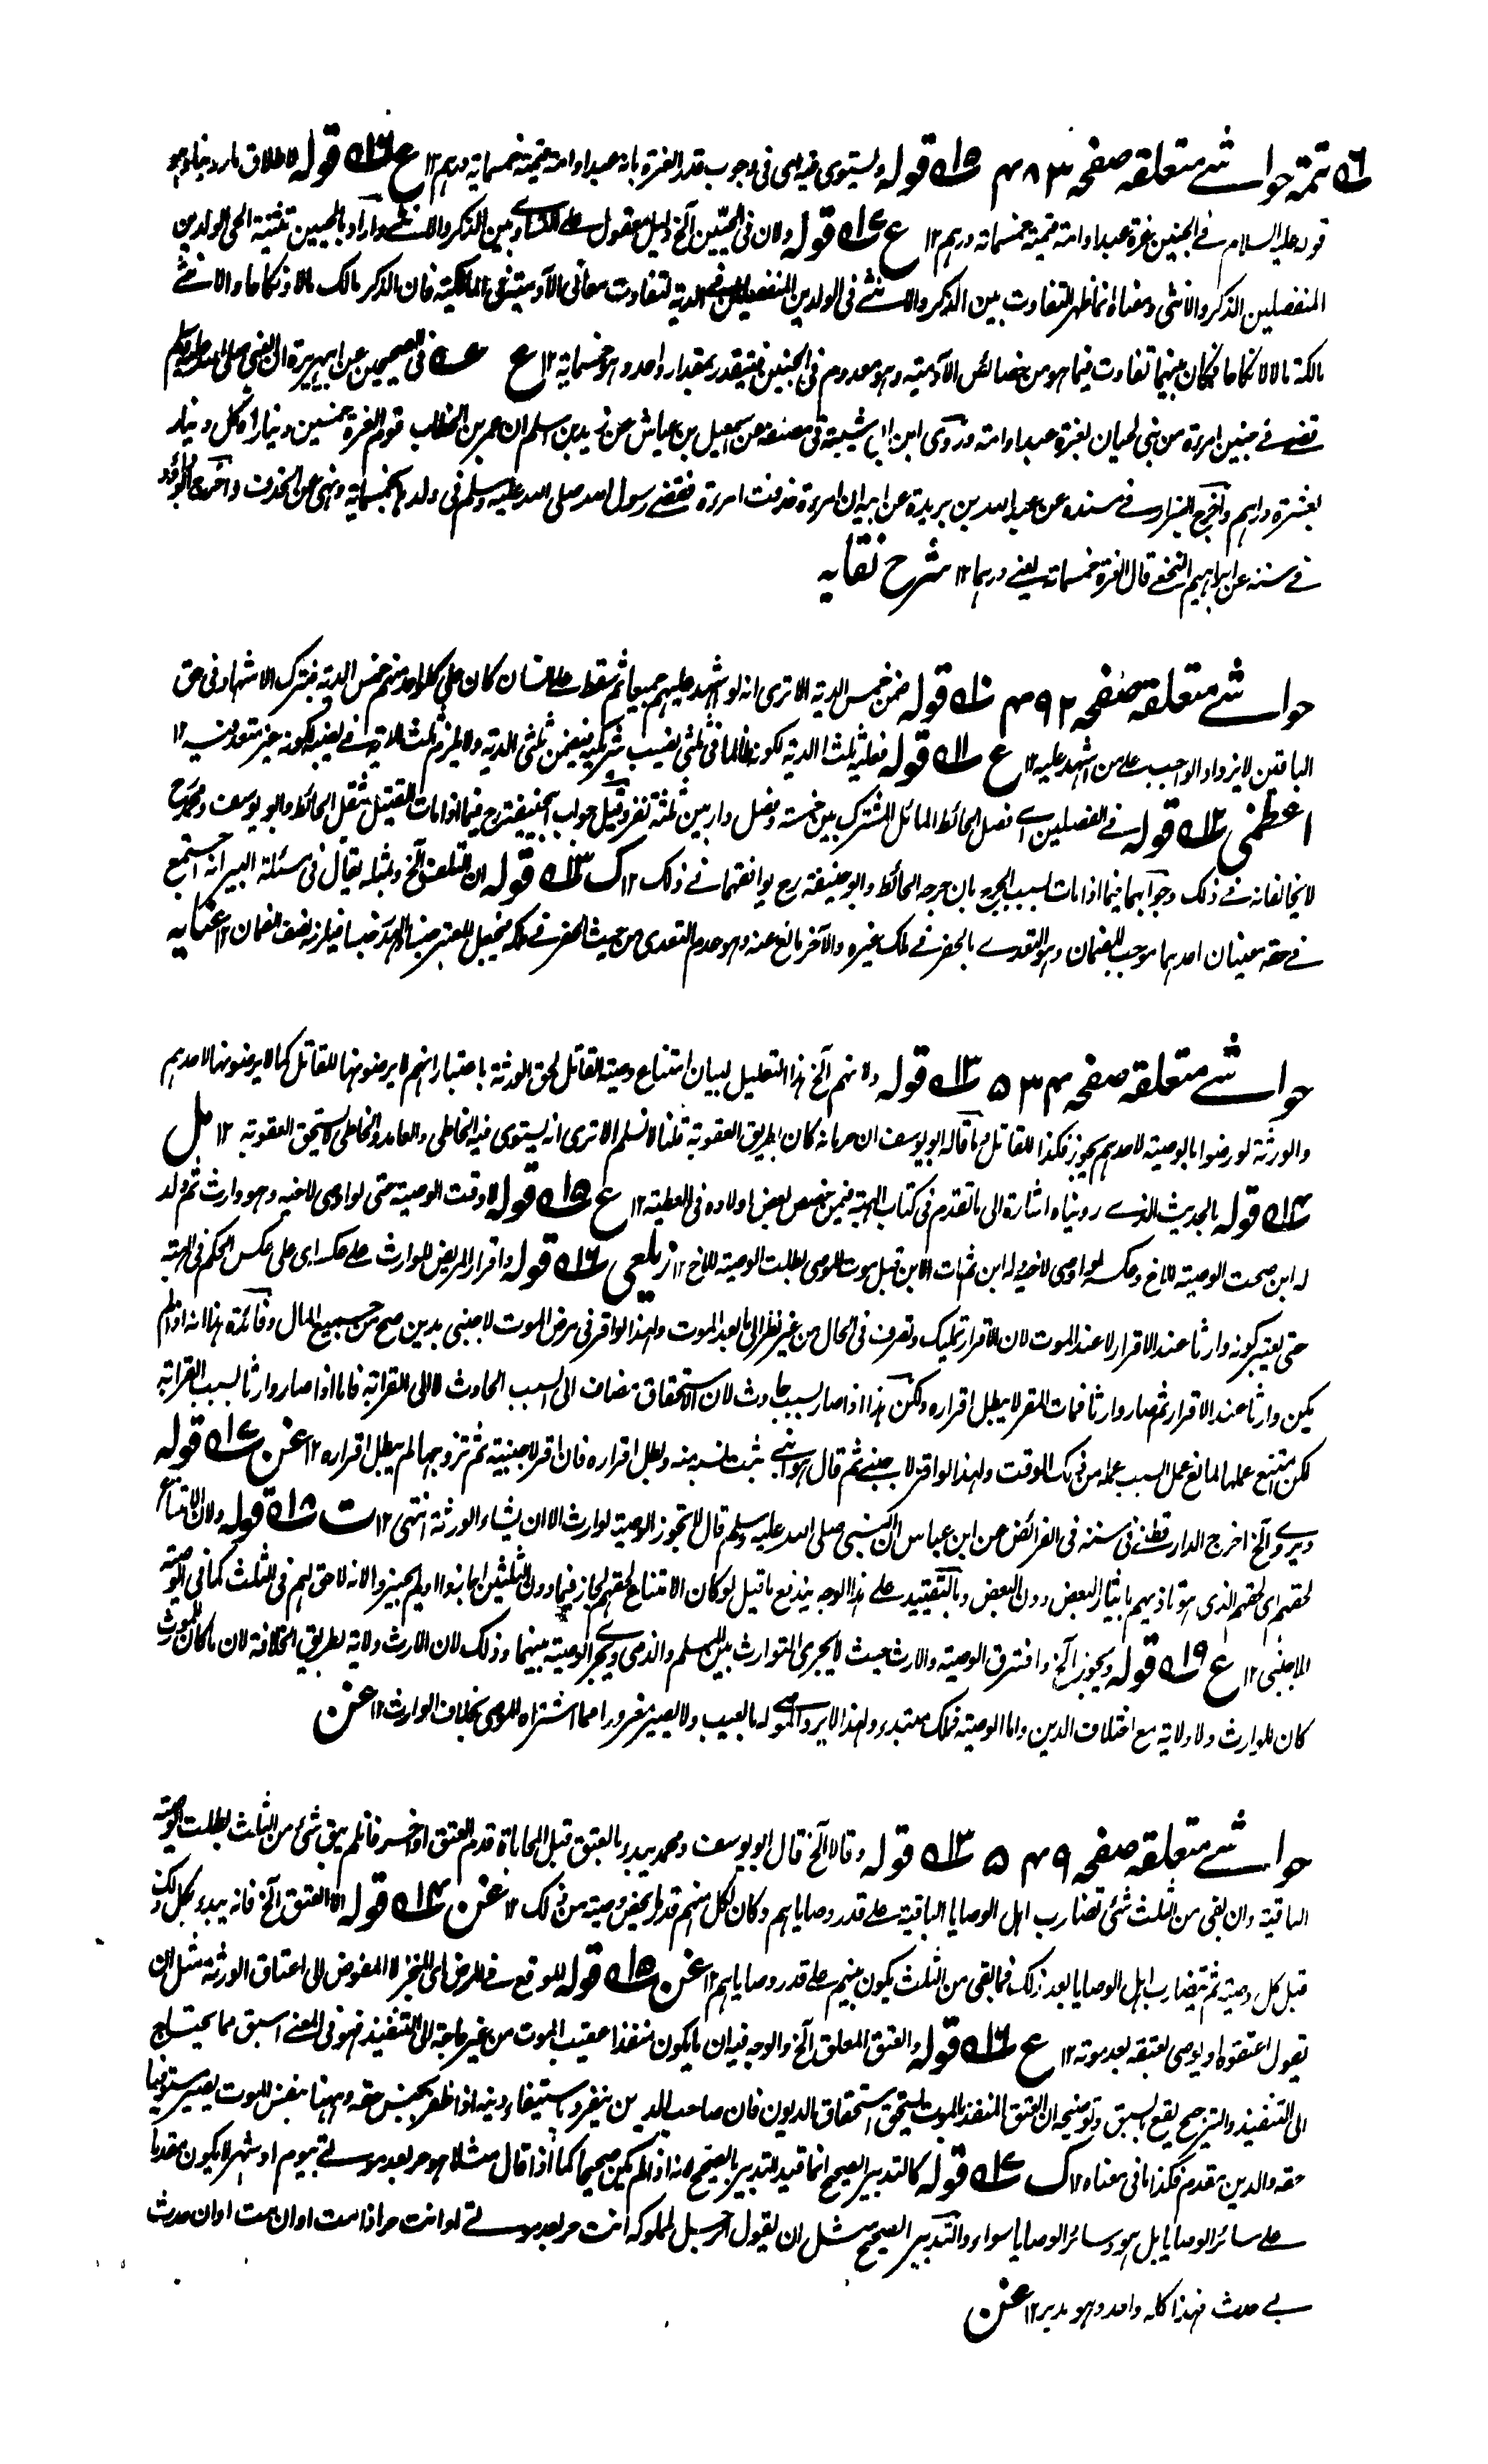 تتمة حواشے متعلقہ صفحہ ۴۸۳ ۱۵ قوله ويستوى فيه اى فى وجوب قدر الغرة بانه عبدا وامة قيمته خمسماية درهم ۱۲ ع ۱۶ قوله لاطلاق ما روينا وهو
قوله عليه السلام فے الجنين غرة عبد او امة قيمته خمسماتة درهم ۱۲ ع ۱۷ قوله ولان فى الجنين آلخ دليل معقول علے التساوے بين الذكر والانثے واراد بالحيين تثنية الحى الولدين
المنفصلين الذكر والانثى ومعناه انما ظهر التفاوت بين الذكر والانثے فى الولدين المنفصلين فے الدية لتفاوت معانى الآدمية فى المالكية فان الذكر مالك مالا ونكاحا والانثے
مالكة مالا لا نكاحا فكان بينهما تفاوت فيما هو من خصائص الآدمية وهو معدوم فى الجنين فيتقدر بمقدار واحد وهو خمسماية ۱۲ ع عه فى الصحيحين عن ابى هريرة ان النبى صلى الله عليه وسلم
قضے فے جنين امرءة من بنى لحيان بغرة عبد او امة وروى ابن ابى شيبة فى مصنفه عن اسمعيل بن عياش عن زيد بن اسلم ان عمر بن الخطاب قوم الغرة بخمسين دينارا وكل دينار
بعشرة دراهم واخرج البزار فے مسنده عن عبد الله بن بريدة عن ابيه ان امرءة خذفت امرءة فقضے رسول الله صلى الله عليه وسلم فى ولدها بخمسماية ونهى عن الخذف واخرج ابو داؤد
فے سننه عن ابراهيم النخعے قال الغرة خمسماتة يعنے درهما ۱۲ شرح نقايه
حواشے متعلقہ صفحہ ۴۹۲ ۱۰ قوله ضمن خمس الدية الا ترى انه لو اشهد عليهم جميعا ثم سقط على انسان كان على كل واحد منهم خمس الدية فبترك الاشهاد فى حق
الباقين لا يزداد الواجب علے من اشهد عليه ۱۲ ع ۱۱ قوله فعليه ثلثا الدية لكونه ظالما فى ثلثى نصيب شريكيه فيضمن ثلثى الدية ولا يلزم ثلث الدية فے نصيبه لكونه غير متعد فيه ۱۲
اعظمى ۱۲ قوله فے الفصلين اے فصل الحائط المائل المشترك بين خمسة وفصل دار بين ثلثة نفر وقيل جواب ابى حنيفة رح فيما اذا مات القتيل بثقل الحائط وابو يوسف ومحمد رح
لا يخالفانه فے ذلك وجوابهما فيما اذا مات بسبب الجرح بان جرحه الحائط وابو حنيفة رح يوافقهما فے ذلك ۱۲ ك ۱۳ قوله ان التلف آلخ وبمثله يقال فى مسئلة البير انه اجتمع
فے حقه معنيان احدهما موجب للضمان وهو التعدے بالحفر فے ملك غيره والآخر مانع عنه وهو عدم التعدى من حيث الحفر فے ملكه فيجعل المعتبر جنسا والهدر جنسا فيلزمه نصف الضمان ۱۲ عنايه
حواشے متعلقہ صفحہ ۵۳۴ ۱۳ قوله ولانهم آلخ هذا التعليل لبيان امتناع وصية القاتل لحق الورثة باعتبار انهم لا يرضونها للقاتل كما لا يرضونها لاحدهم
والورثة لو رضوا بالوصية لاحدهم يجوز فكذا للقاتل وما قاله ابو يوسف ان حرمانه كان بطريق العقوبة قلنا لا نسلم الا ترى انه يستوى فيه الخاطى والعامد والخاطى لا يستحق العقوبة ۱۲ مل
۱۴ قوله بالحديث الذے رويناه اشارة الى ما تقدم فى كتاب الهبة فيمن خصص بعض اولاده فى العطية ۱۲ ع ۱۵ قوله لا وقت الوصية حتى لو اوصى لاخيه وهو وارث ثم ولد
له ابن صحت الوصية للاخ وعكسه لو اوصى لاخيه وله ابن ثم مات الابن قبل موت الموصى بطلت الوصية للاخ ۱۲ زيلعى ۱۶ قوله واقرار المريض للوارث علے عكسه اى على عكس الحكم فى الهبة
حتى يعتبر كونه وارثا عند الاقرار لا عند الموت لان الاقرار تمليك وتصرف فى الحال من غير نظر الى ما بعد الموت ولهذا لو اقر فى مرض الموت لاجنبى بدين صح من جميع المال وفائدة هذا انه اذا لم
يكن وارثا عند الاقرار ثم صار وارثا فمات المقر لا يبطل اقراره ولكن هذا اذا صار بسبب حادث لان الاستحقاق مضاف الى السبب الحادث لا الى القرابة فاما اذا صار وارثا بسبب القرابة
لكن امتنع عملها لمانع عمل السبب عمله من ذلك الوقت ولهذا لو اقر لاجنبے ثم قال هو ابنے ثبت نسبه منه وبطل اقراره فان اقر لاجنبية ثم تزوجها لم يبطل اقراره ۱۲ عن ۱۷ قوله
ويروے آلخ اخرج الدار قطنے فى سننه فى الفرائض عن ابن عباس ان النبى صلى الله عليه وسلم قال لا تجوز الوصية لوارث الا ان يشاء الورثة انتهى ۱۲ ت ۱۸ قوله ولان الامتناع
لحقهم اى لحقهم الذى هو تاذيهم بايثار البعض دون البعض وبالتقييد علے هذا الوجه يندفع ما قيل لو كان الامتناع لحقهم لجاز فيما دون الثلثين اجازوا او لم يجيزوا لانه لا حق لهم فى الثلث كما فى الوصية
للاجنبى ۱۲ ع ۱۹ قوله ويجوز آلخ وافترق الوصية والارث حيث لا يجرى التوارث بين المسلم والذمى ويجرى الوصية بينهما وذلك لان الارث ولاية بطريق الخلافة لان ما كان للمورث
كان للوارث ولا ولاية مع اختلاف الدين واما الوصية فملك مبتدء ولهذا لا يرد الموصے له بالعيب ولا يصير مغرورا مما اشتراه الموصى بخلاف الوارث ۱۲ عن
حواشے متعلقہ صفحہ ۵۴۹ ۱۳ قوله وقالا آلخ قال ابو يوسف ومحمد يبدء بالعتق قبل المحاباة قدم العتق او اخر فان لم يبق شئ من الثلث بطلت الوصية
الباقية وان بقى من الثلث شئ تضارب اهل الوصايا الباقية علے قدر وصاياهم وكان لكل منهم قدر ما يخص وصيته من ذلك ۱۲ عن ۱۴ قوله الا العتق آلخ فانه يبدء بكل ذلك
قبل كل وصية ثم يتضارب اهل الوصايا بعد ذلك فما بقى من الثلث يكون بينهم علے قدر وصاياهم ۱۲ عن ۱۵ قوله الموقع فے المرض اى المنجز لا المفوض الى اعتاق الورثة مثل ان
يقول اعتقوه او يوصى بعتقه بعد موته ۱۲ ع ۱۶ قوله والعتق المعلق آلخ والوجه فيه ان ما يكون منفذا عقيب الموت من غير حاجة الى التنفيذ فهو فى المعنے اسبق مما يحتاج
الى التنفيذ والترجيح يقع بالسبق وتوضيحه ان العتق المنفذ بالموت يستحق استحقاق الديون فان صاحب الدين ينفرد باستيفاء دينه اذا ظفر بجنس حقه وههنا بنفس الموت يصير مستوفيا
حقه والدين مقدم فكذا ما فى معناه ۱۲ ك ۱۷ قوله كالتدبير الصحيح انما قيد التدبير بالصحيح لانه اذا لم يكن صحيحا كما اذا قال مثلا هو حر بعد موتے بيوم او شهر لا يكون مقدما
علے سائر الوصايا بل هو وسائر الوصايا سواء والتدبير الصحيح مثل ان يقول الرجل لمملوكه انت حر بعد موتے او انت حر اذا مت او ان مت او ان حدث
بے حدث فهذا كله واحد وهو مدبر ۱۲ عن